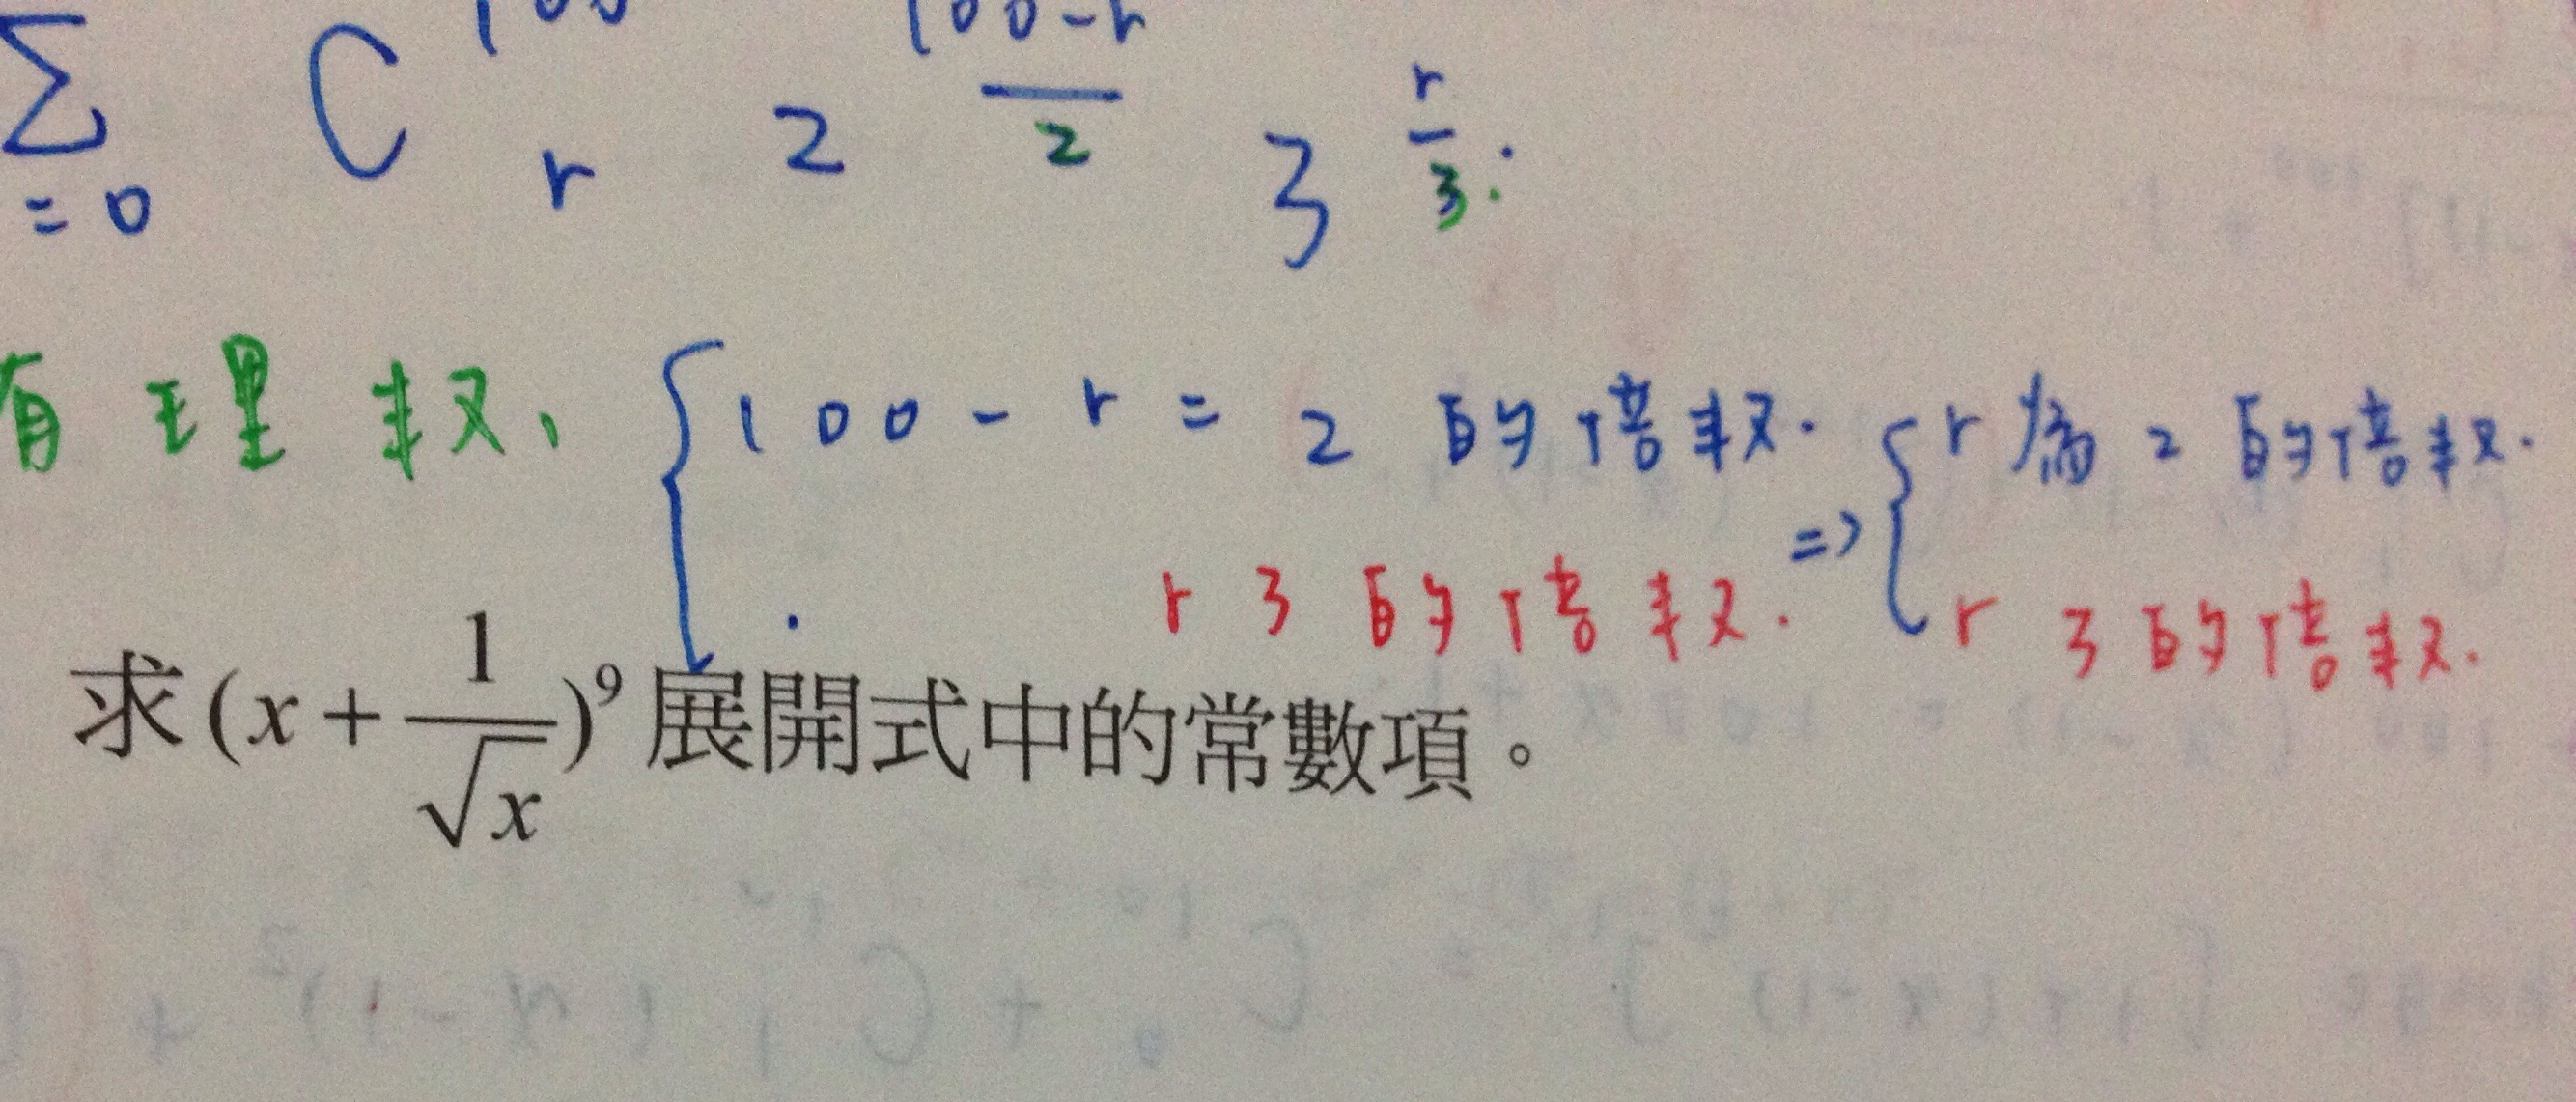 ∑ C 100 r 2 100-r/2 3 r/3
=0
有理数、 { 100 - r = 2 的倍数. ⇒ { r 為 2 的倍数.
r 3 的倍数. r 3 的倍数.
求(x + 1/√x)⁹展開式中的常數項。